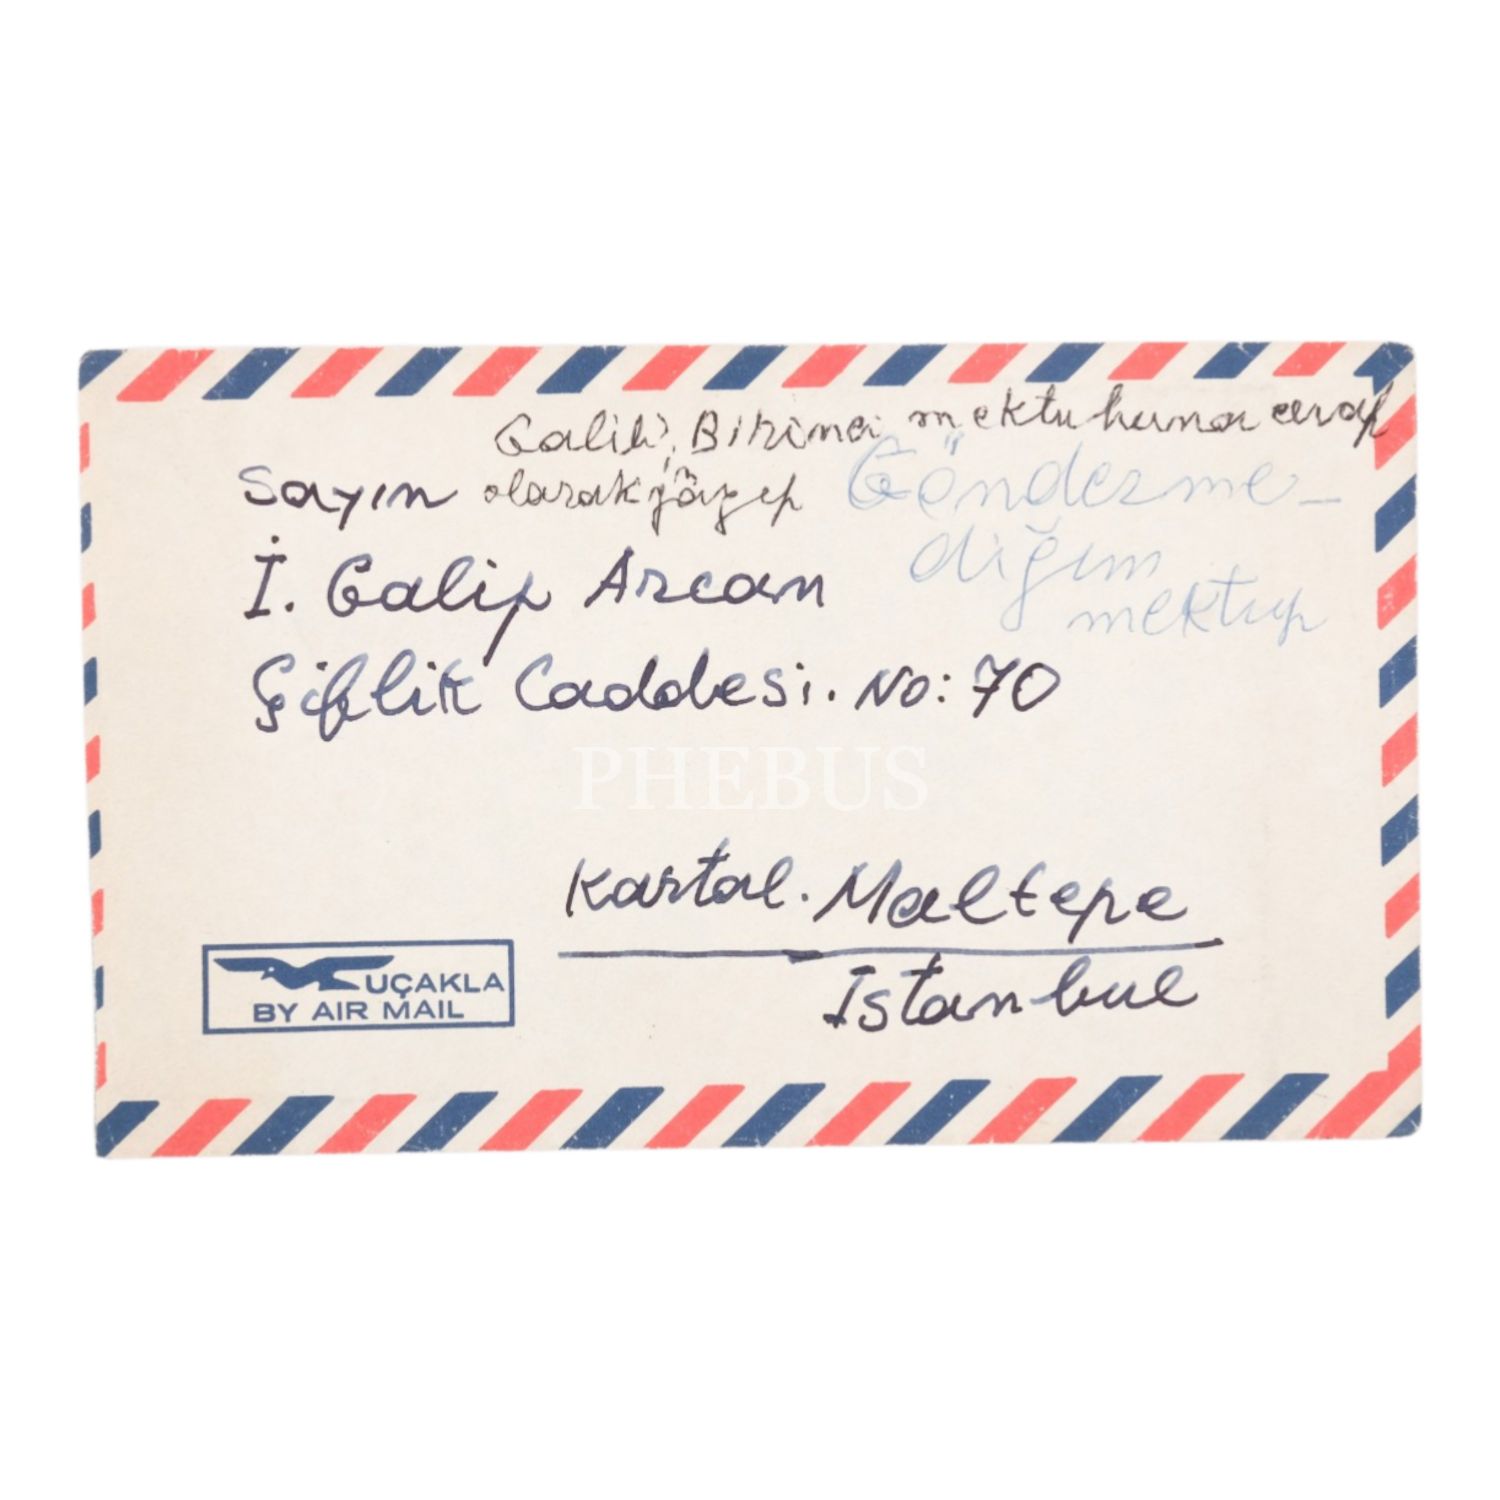 Galibi, Birinci mektubuna cevap
olarak yazıp Gönderme-
diğim
mektup
Sayın
İ. Galip Arcan
Çiflik Caddesi. No: 70
PHEBUS
Kartal. Maltepe
Istanbul
UÇAKLA
BY AIR MAIL